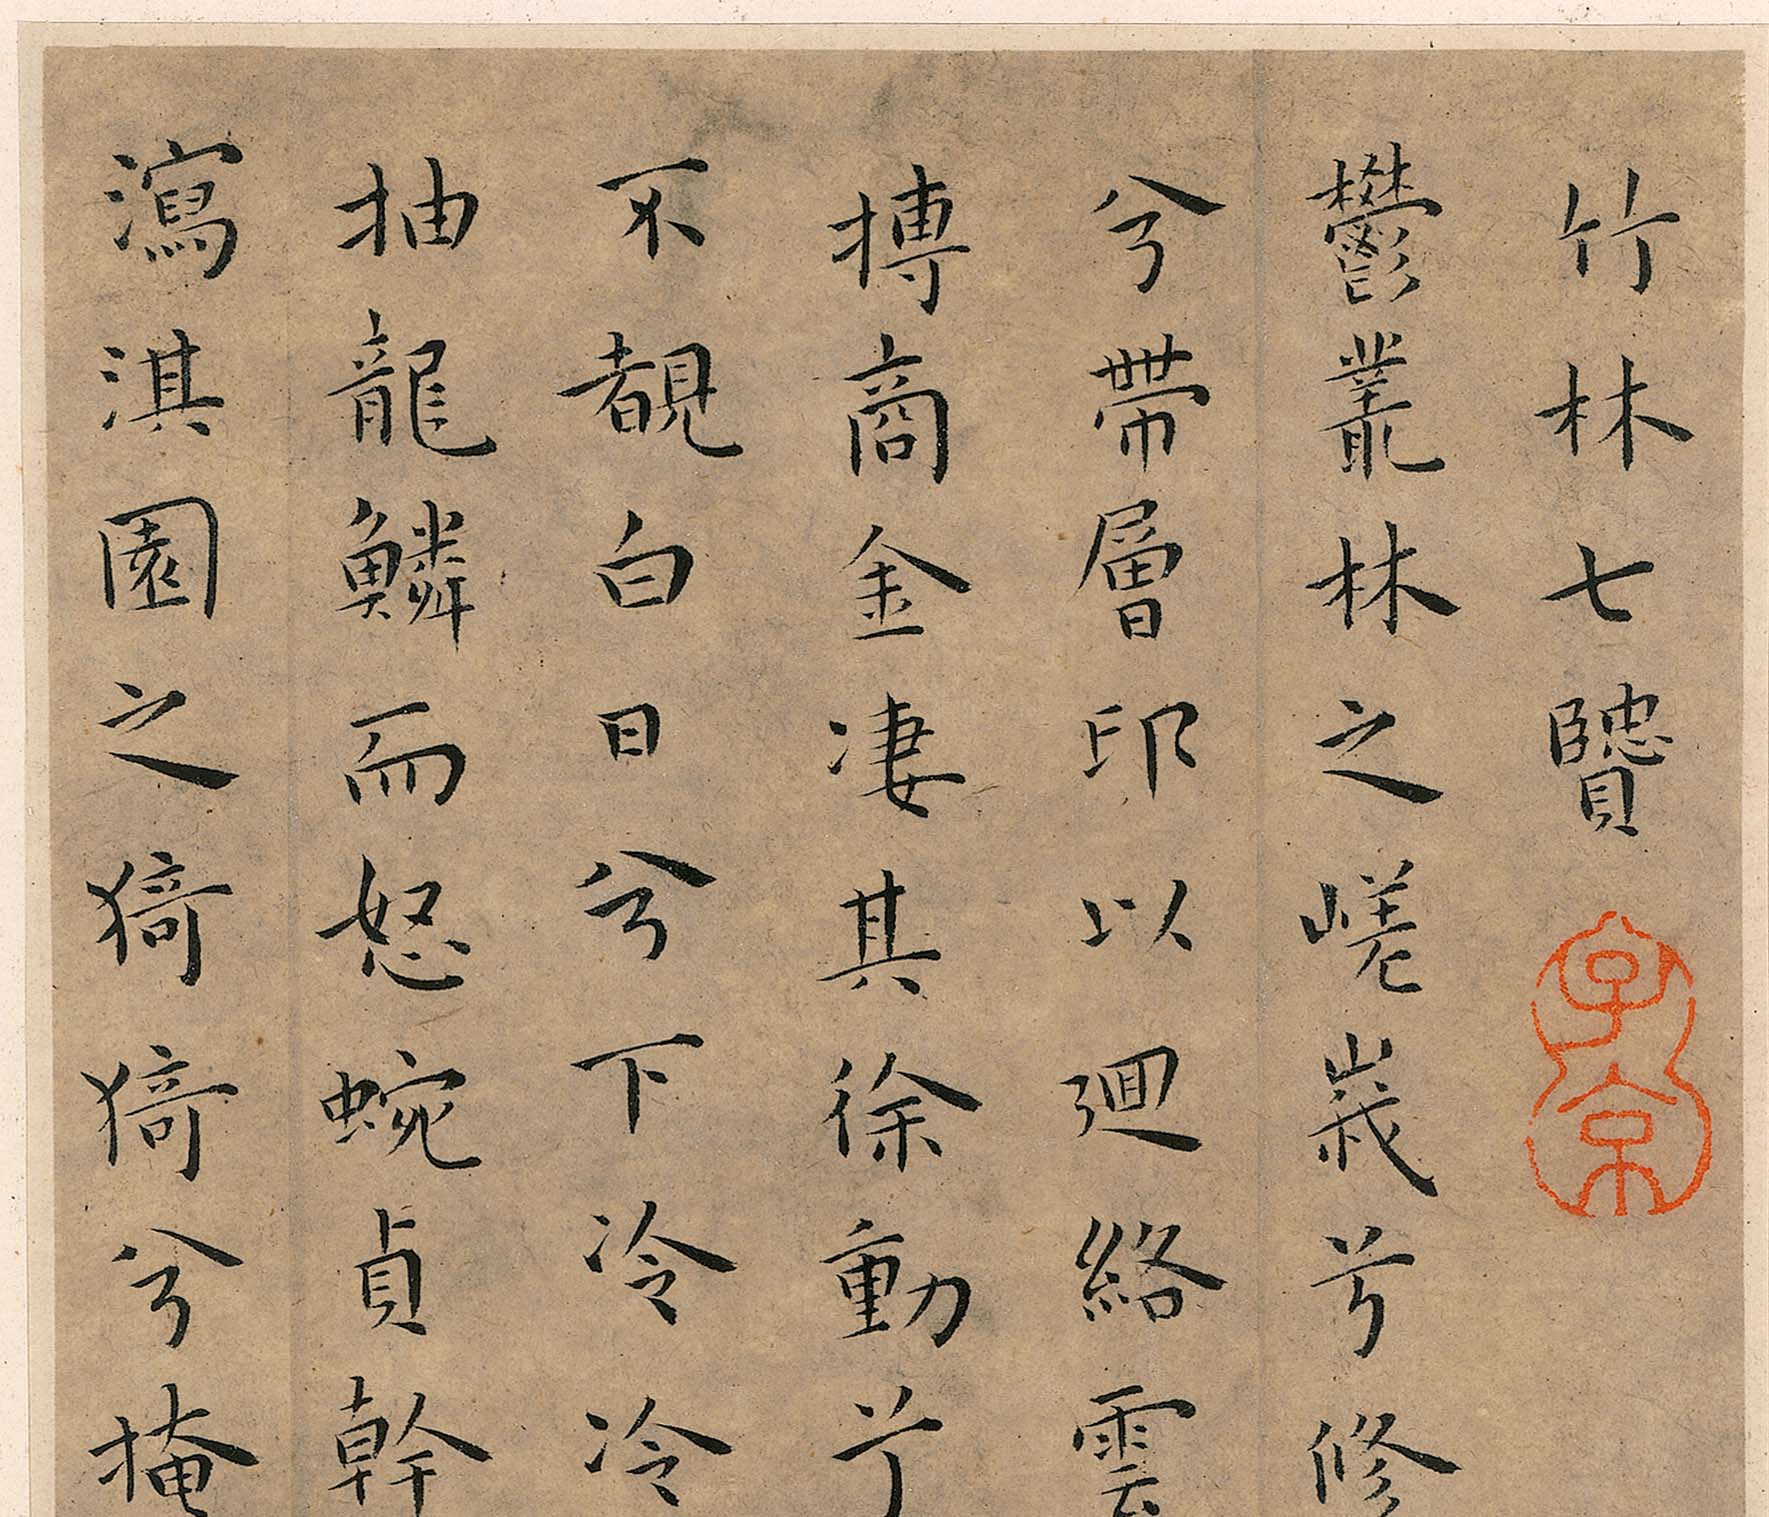 竹林七賢
子京
鬱叢林之嵯峩兮修
兮帶層邛以迴絡雲
摶商金凄其徐動兮
不覩白日兮下冷冷
抽龍鱗而怒蜿貞幹
瀉淇園之猗猗兮掩